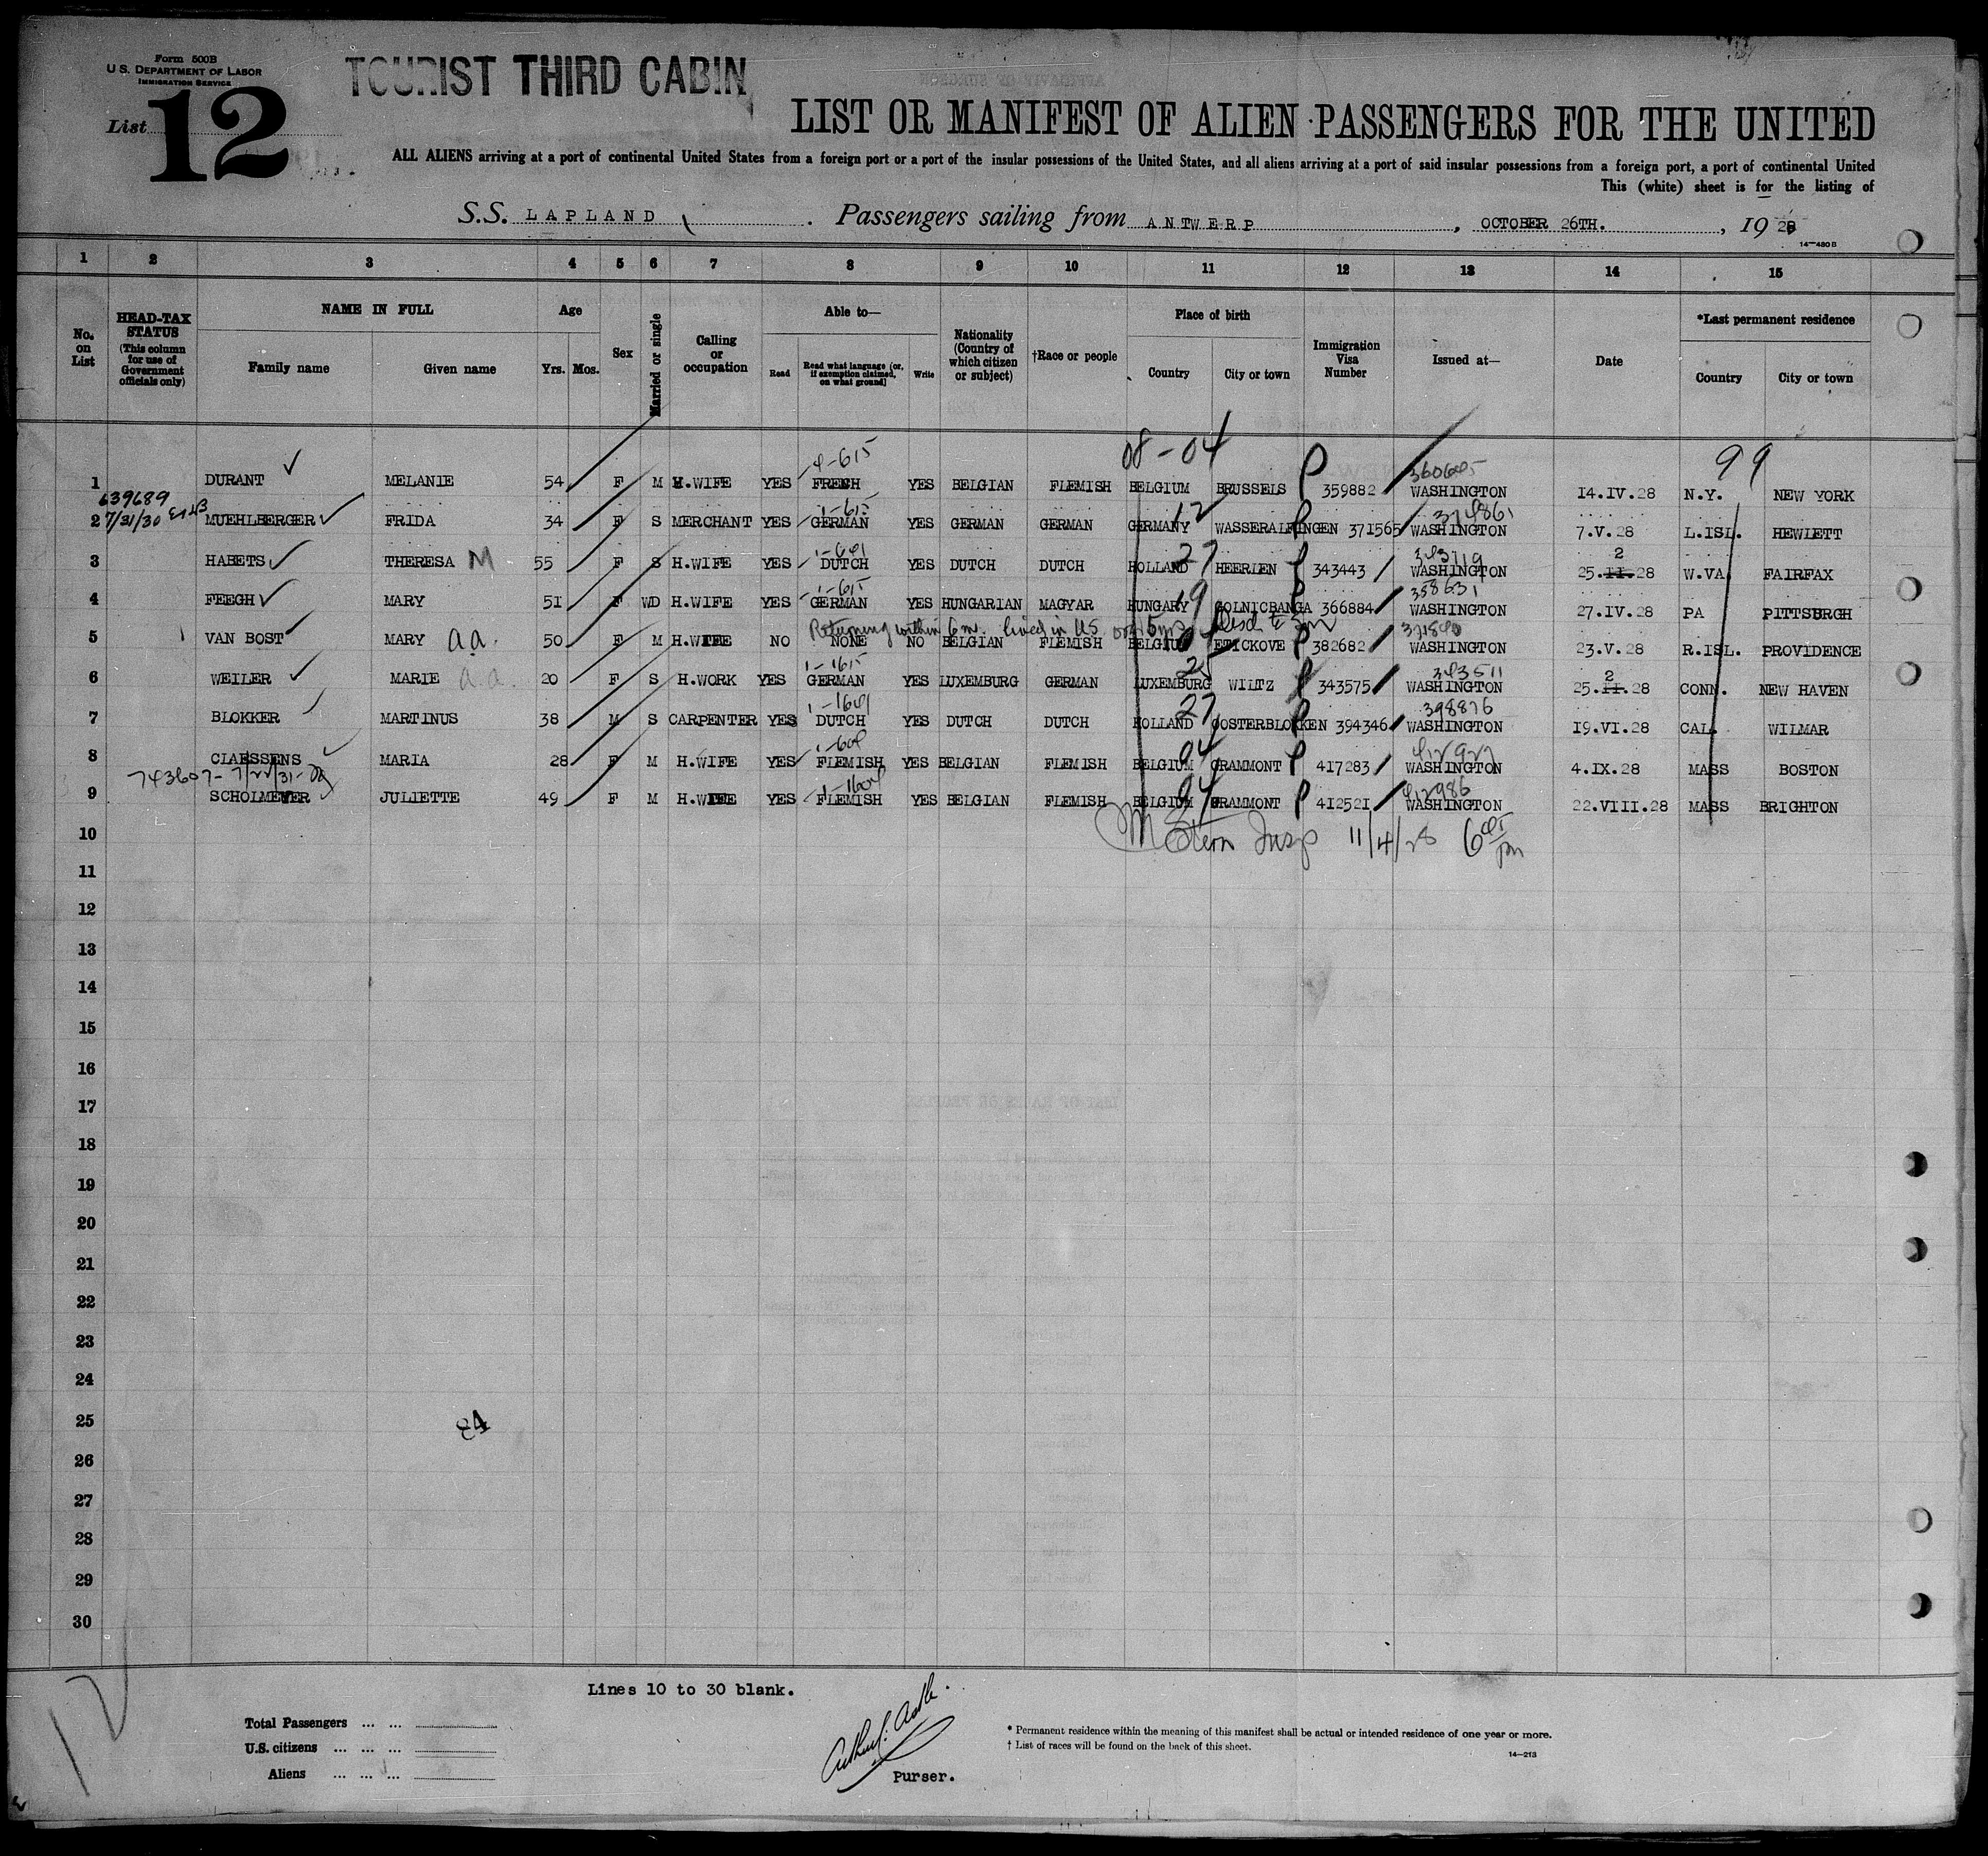 Form 500B
U.S. DEPARTMENT OF LABOR
IMMIGRATION SERVICE
List 12
TOURIST THIRD CABIN
LIST OR MANIFEST OF ALIEN PASSENGERS FOR THE UNITED
ALL ALIENS arriving at a port of continental United States from a foreign port or a port of the insular possessions of the United States, and all aliens arriving at a port of said insular possessions from a foreign port, a port of continental United
This (white) sheet is for the listing of
S.S. LAPLAND . Passengers sailing from ANTWERP , OCTOBER 26TH. , 19 28
14—480 B
1 2 3 4 5 6 7 8 9 10 11 12 13 14 15
No. on List
HEAD-TAX STATUS (This column for use of Government officials only)
NAME IN FULL
Family name Given name
Age
Yrs. Mos.
Sex
Married or single
Calling or occupation
Able to—
Read
Read what language (or, if exemption claimed, on what ground)
Write
Nationality (Country of which citizen or subject)
†Race or people
Place of birth
Country City or town
Immigration Visa Number
Issued at—
Date
*Last permanent residence
Country City or town
08-04 99
4-615 360645
1 DURANT MELANIE 54 F M H.WIFE YES FRENCH YES BELGIAN FLEMISH BELGIUM BRUSSELS 359882 WASHINGTON 14.IV.28 N.Y. NEW YORK
639689 1-615 12 374861
2 7/31/30 MUEHLBERGER FRIDA 34 F S MERCHANT YES GERMAN YES GERMAN GERMAN GERMANY WASSERALFINGEN 371565 WASHINGTON 7.V.28 L.ISL. HEWLETT
1-601 27 343719 2
3 HABETS THERESA M 55 F S H.WIFE YES DUTCH YES DUTCH DUTCH HOLLAND HEERLEN 343443 WASHINGTON 25.II.28 W.VA. FAIRFAX
1-615 19 358631
4 FEEGH MARY 51 F WD H.WIFE YES GERMAN YES HUNGARIAN MAGYAR HUNGARY GOLNICBANGA 366884 WASHINGTON 27.IV.28 PA PITTSBRGH
Returning within 6 m. lived in US over 5 yrs
5 VAN BOST MARY a.a. 50 F M H.WIFE NO NONE NO BELGIAN FLEMISH BELGIUM ETICKOVE 382682 WASHINGTON 23.V.28 R.ISL. PROVIDENCE
1-1615 25 343511 2
6 WEILER MARIE a.a 20 F S H.WORK YES GERMAN YES LUXEMBURG GERMAN LUXEMBURG WILTZ 343575 WASHINGTON 25.II.28 CONN. NEW HAVEN
1-1601 27 398876
7 BLOKKER MARTINUS 38 M S CARPENTER YES DUTCH YES DUTCH DUTCH HOLLAND OOSTERBLOKKEN 394346 WASHINGTON 19.VI.28 CAL. WILMAR
1-604 04 412927
8 CLAESSENS MARIA 28 F M H.WIFE YES FLEMISH YES BELGIAN FLEMISH BELGIUM GRAMMONT 417283 WASHINGTON 4.IX.28 MASS BOSTON
743607- 7/22/31- 1-1604 04 412986
9 SCHOLMEYER JULIETTE 49 F M H.WIFE YES FLEMISH YES BELGIAN FLEMISH BELGIUM GRAMMONT 412521 WASHINGTON 22.VIII.28 MASS BRIGHTON
10 M Stern Insp 11/4/28 6 45 pm
11
12
13
14
15
16
17
18
19
20
21
22
23
24
25
84
26
27
28
29
30
12
Lines 10 to 30 blank.
Total Passengers ... ...
U.S. citizens ... ... ...
Aliens ... ... ...
Purser.
* Permanent residence within the meaning of this manifest shall be actual or intended residence of one year or more.
† List of races will be found on the back of this sheet.
14—213